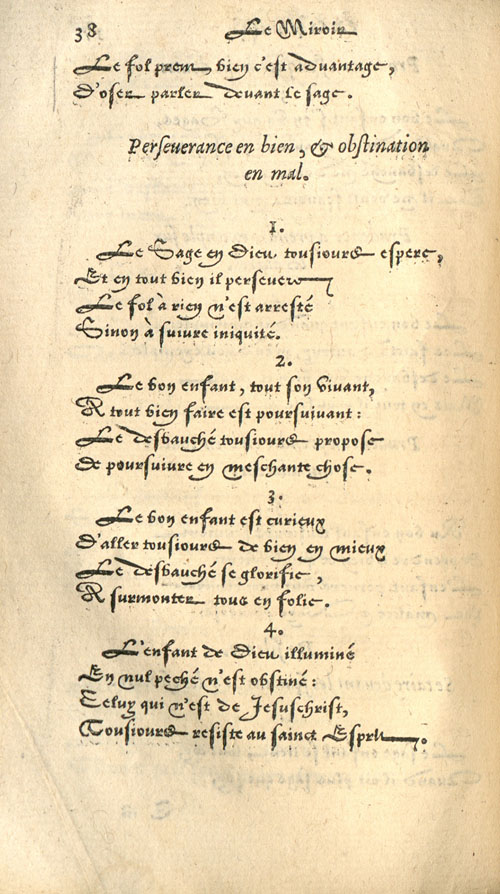 38 Le Miroir
Le fol prem, bien c'est aduantage,
D'oser parler deuant le sage.
Perseuerance en bien, & obstination
en mal.
1.
Le Sage en Dieu tousiours espere,
Et en tout bien il perseuere
Le fol à rien n'est arresté
Sinon à suiure iniquité.
2.
Le bon enfant, tout son viuant,
A tout bien faire est poursuiuant:
Le desbauché tousiours propose
De poursuiure en meschante chose.
3.
Le bon enfant est curieux
D'aller tousiours de bien en mieux
Le desbauché se glorifie,
A surmonter tous en folie.
4.
L'enfant de Dieu illuminé
En nul peché n'est obstiné:
Celuy qui n'est de Jesuschrist,
Tousiours resiste au sainct Esprit.